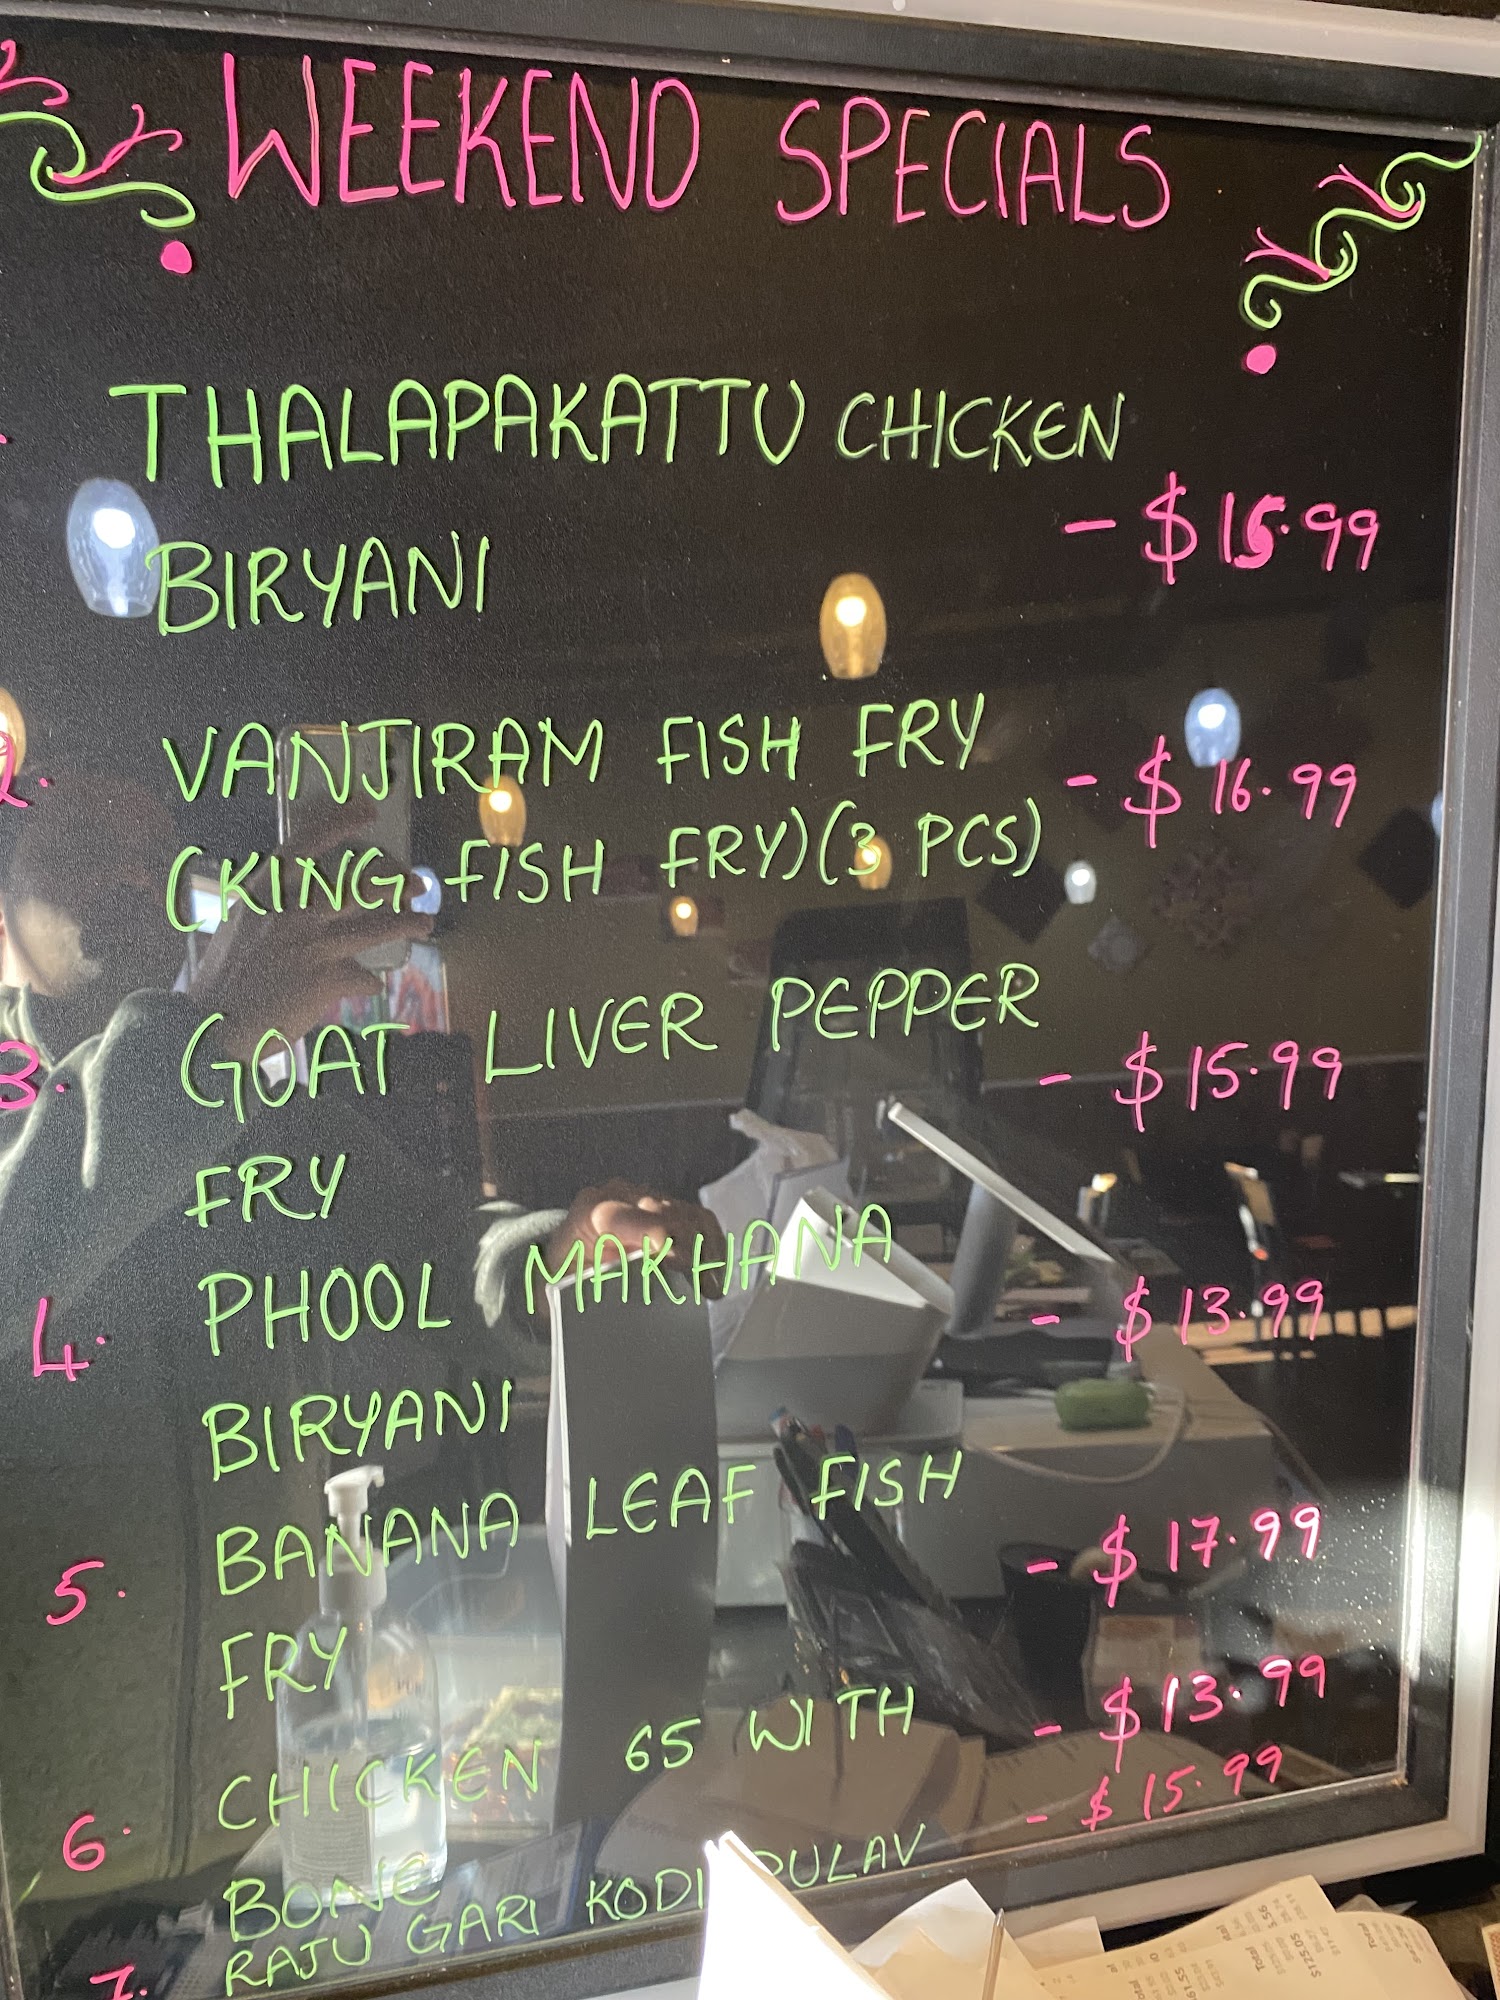 WEEKEND SPECIALS
THALAPAKATTU CHICKEN
BIRYANI - $15.99
2. VANJIRAM FISH FRY - $16.99
(KING FISH FRY)(3 PCS)
3. GOAT LIVER PEPPER - $15.99
FRY
4. PHOOL MAKHANA - $13.99
BIRYANI
5. BANANA LEAF FISH - $17.99
FRY
6. CHICKEN 65 WITH - $13.99
BONE
7. RAJU GARI KODI PULAV - $15.99
Total
$125.05